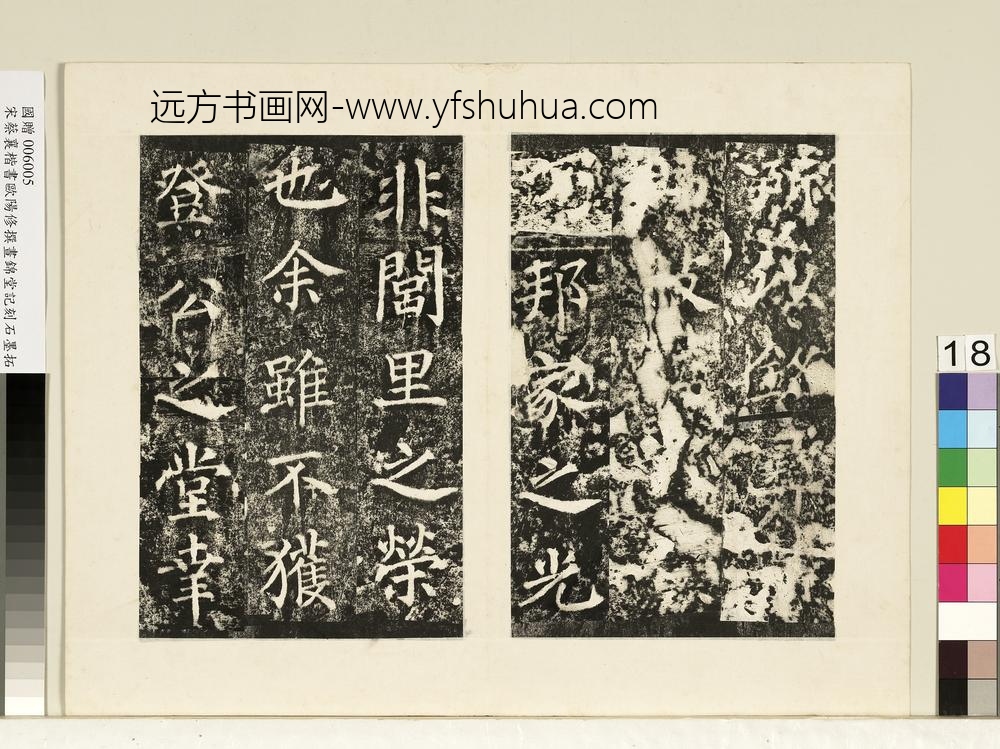 远方书画网-www.yfshuhua.com
18
銘
邦家之光
非閭里之榮
也余雖不獲
登公之堂幸
國贈 006005
宋蔡襄楷書歐陽修撰晝錦堂記刻石墨拓